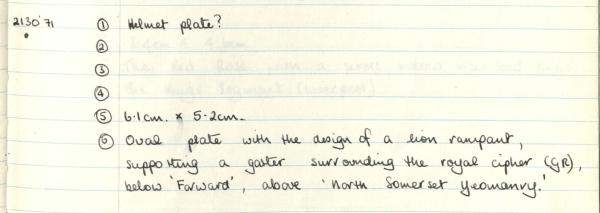 2130'71 ① Helmet plate?
②
③
④
⑤ 6.1cm. x 5.2cm.
⑥ Oval plate with the design of a lion rampant,
supporting a garter surrounding the royal cipher (GR),
below 'Forward', above 'North Somerset Yeomanry.'